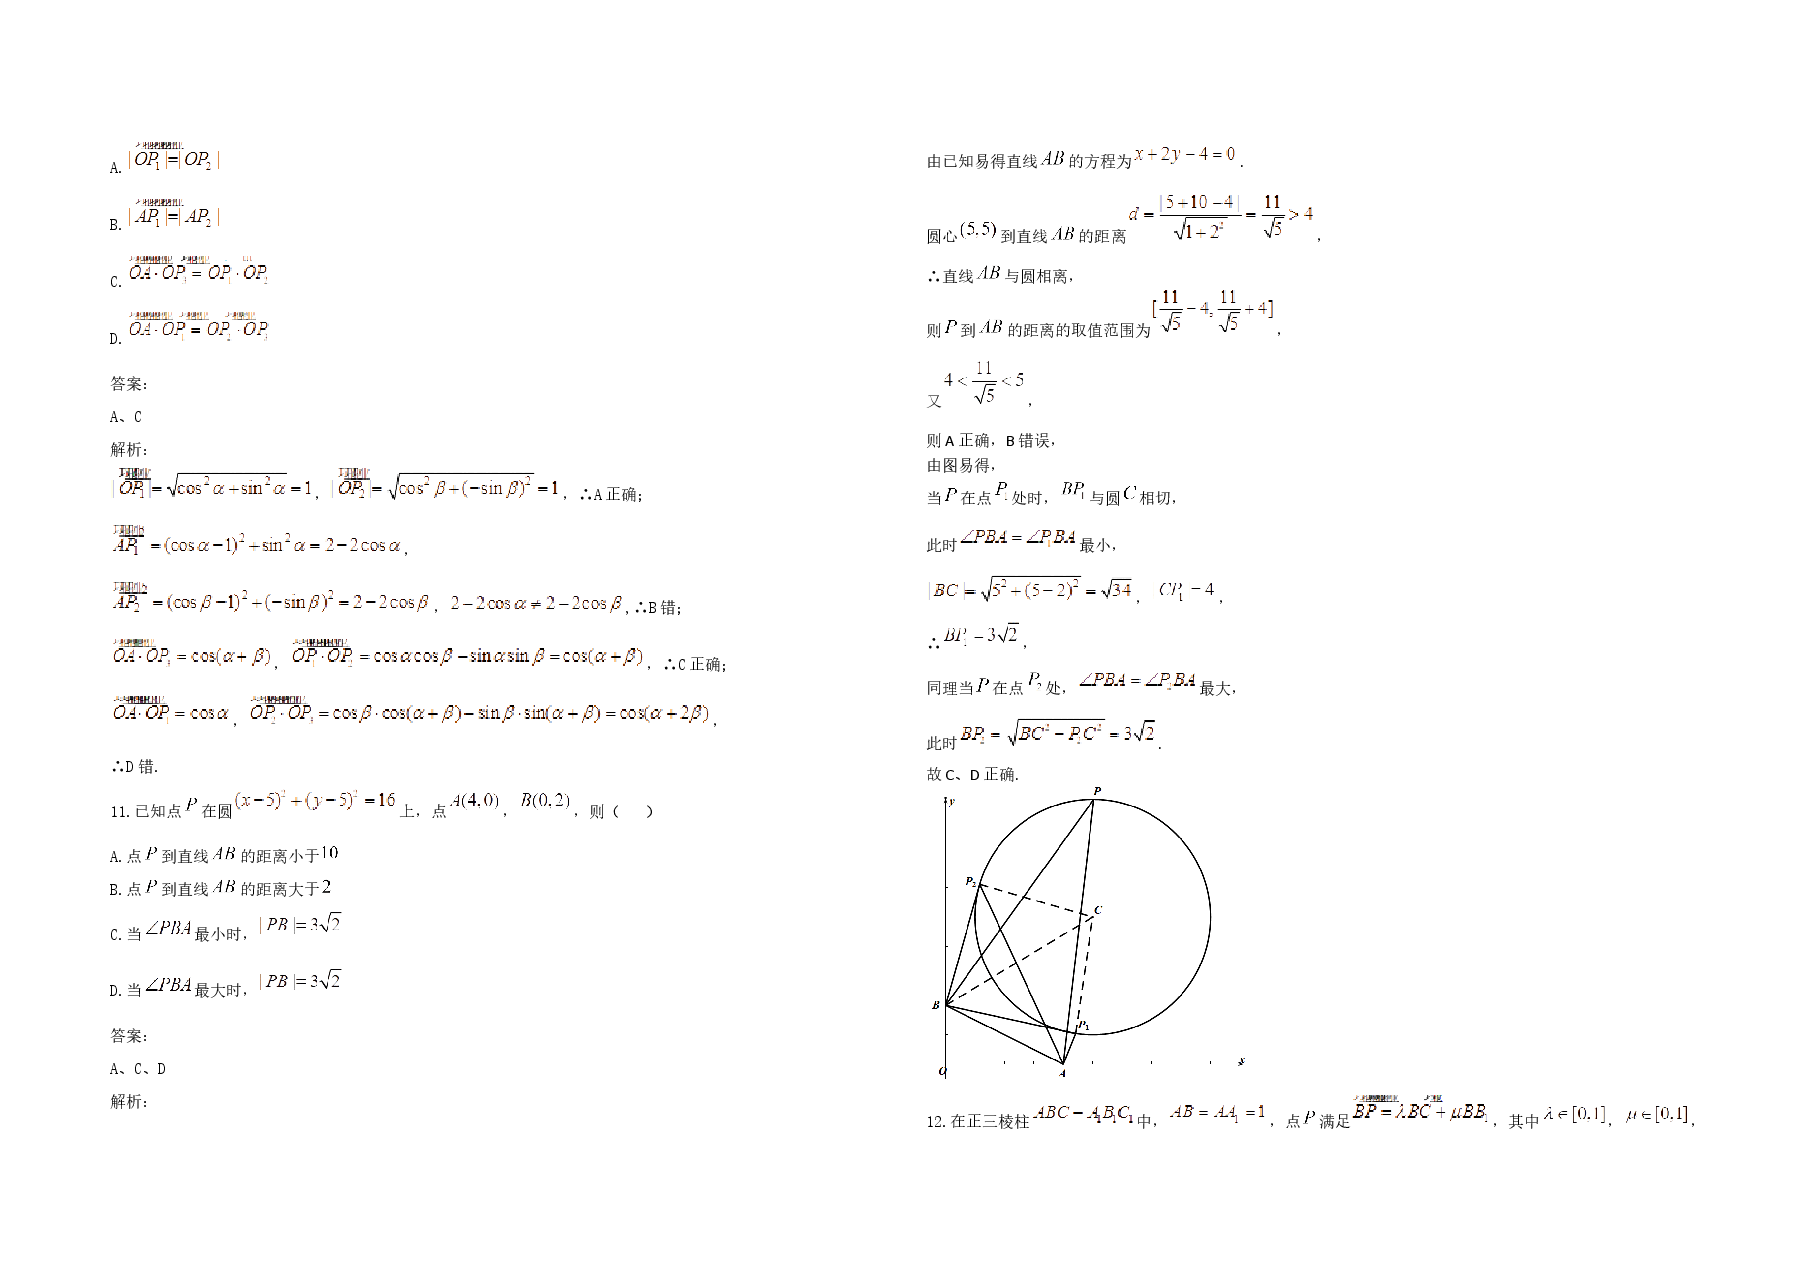 A. |OP₁|=|OP₂|
B. |AP₁|=|AP₂|
C. OA·OP₃=OP₁·OP₂
D. OA·OP₁=OP₂·OP₃
答案：
A、C
解析：
|OP₁|=√(cos²α+sin²α)=1，|OP₂|=√(cos²β+(−sinβ)²)=1，∴A正确；
AP₁=(cosα−1)²+sin²α=2−2cosα，
AP₂=(cosβ−1)²+(−sinβ)²=2−2cosβ，2−2cosα≠2−2cosβ，∴B错；
OA·OP₃=cos(α+β)，OP₁·OP₂=cosαcosβ−sinαsinβ=cos(α+β)，∴C正确；
OA·OP₁=cosα，OP₂·OP₃=cosβ·cos(α+β)−sinβ·sin(α+β)=cos(α+2β)，
∴D错.
11.已知点P在圆(x−5)²+(y−5)²=16上，点A(4,0)，B(0,2)，则（　）
A.点P到直线AB的距离小于10
B.点P到直线AB的距离大于2
C.当∠PBA最小时，|PB|=3√2
D.当∠PBA最大时，|PB|=3√2
答案：
A、C、D
解析：
由已知易得直线AB的方程为x+2y−4=0.
圆心(5,5)到直线AB的距离d=|5+10−4|/√(1+2²)=11/√5>4，
∴直线AB与圆相离，
则P到AB的距离的取值范围为[11/√5−4,11/√5+4]，
又4<11/√5<5，
则A正确，B错误，
由图易得，
当P在点P₁处时，BP₁与圆C相切，
此时∠PBA=∠P₁BA最小，
|BC|=√(5²+(5−2)²)=√34，CP₁=4，
∴BP₁=3√2，
同理当P在点P₂处，∠PBA=∠P₂BA最大，
此时BP₂=√(BC²−P₂C²)=3√2.
故C、D正确.
y
P
P₂
C
B
P₁
O
A
x
12.在正三棱柱ABC−A₁B₁C₁中，AB=AA₁=1，点P满足BP=λBC+μBB₁，其中λ∈[0,1]，μ∈[0,1]，